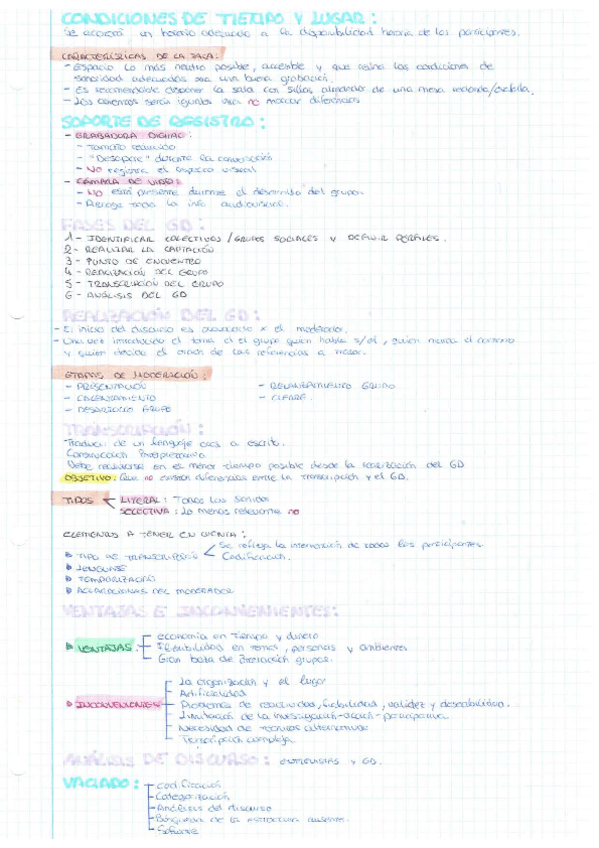 CONDICIONES DE TIEMPO Y LUGAR:
Se acordará un horario adecuado a la disponibilidad horaria de los participantes.
CARACTERÍSTICAS DE LA SALA:
- Espacio lo más neutro posible, accesible y que reúna las condiciones de
sonoridad adecuadas para una buena grabación.
- Es recomendable disponer la sala con sillas alrededor de una mesa redonda/
- Los asientos serán iguales para no marcar diferencias
SOPORTE DE REGISTRO:
- GRABADORA DIGITAL:
- Tamaño reducido
- "Desaparece" durante la conversación
- No registra el espacio visual
- CÁMARA DE VIDEO:
- No está presente durante el desarrollo del grupo
- Recoge toda la info audiovisual.
FASES DEL GD:
1- IDENTIFICAR COLECTIVOS/GRUPOS SOCIALES Y DEFINIR PERFILES.
2- REALIZAR LA CAPTACIÓN
3- PUNTO DE ENCUENTRO
4- REALIZACIÓN DEL GRUPO
5- TRANSCRIPCIÓN DEL GRUPO
6- ANÁLISIS DEL GD
REALIZACIÓN DEL GD:
- El inicio del discurso es x el moderador.
- Una vez introducido el tema es el grupo quien habla s/él, quien marca el
y quien decide el orden de las referencias a tratar.
ETAPAS DE MODERACIÓN:
- PRESENTACIÓN - RELANZAMIENTO GRUPO
- CALENTAMIENTO - CIERRE.
- DESARROLLO GRUPO
TRANSCRIPCIÓN:
Traducir de un lenguaje oral a escrito.
Construcción Interpretativa
Debe realizarse en el menor tiempo posible desde la realización del GD
OBJETIVO: Que no existan diferencias entre la transcripción y el GD.
TIPOS LITERAL: Todos los sonidos
SELECTIVA: Lo menos relevante no
ELEMENTOS A TENER EN CUENTA:
Se refleja la interacción de todos los participantes
TIPO DE TRANSCRIPCIÓN Codificación.
LENGUAJE
TEMPORIZACIÓN
ACLARACIONES DEL MODERADOR
VENTAJAS E INCONVENIENTES:
economía en tiempo y dinero
VENTAJAS: Flexibilidad en temas, personas y ambientes
Gran baza de interacción grupal.
La organización y el lugar
Artificialidad
INCONVENIENTES Problemas de reactividad, fiabilidad, validez y deseabilidad.
Limitación de la investigación-acción-participativa
Necesidad de técnicas alternativas
Transcripción compleja
ANÁLISIS DE DISCURSO: ENTREVISTAS y GD.
VACIADO: Codificación
Categorización
Análisis del discurso
Búsqueda de la estructura ausente.
Software